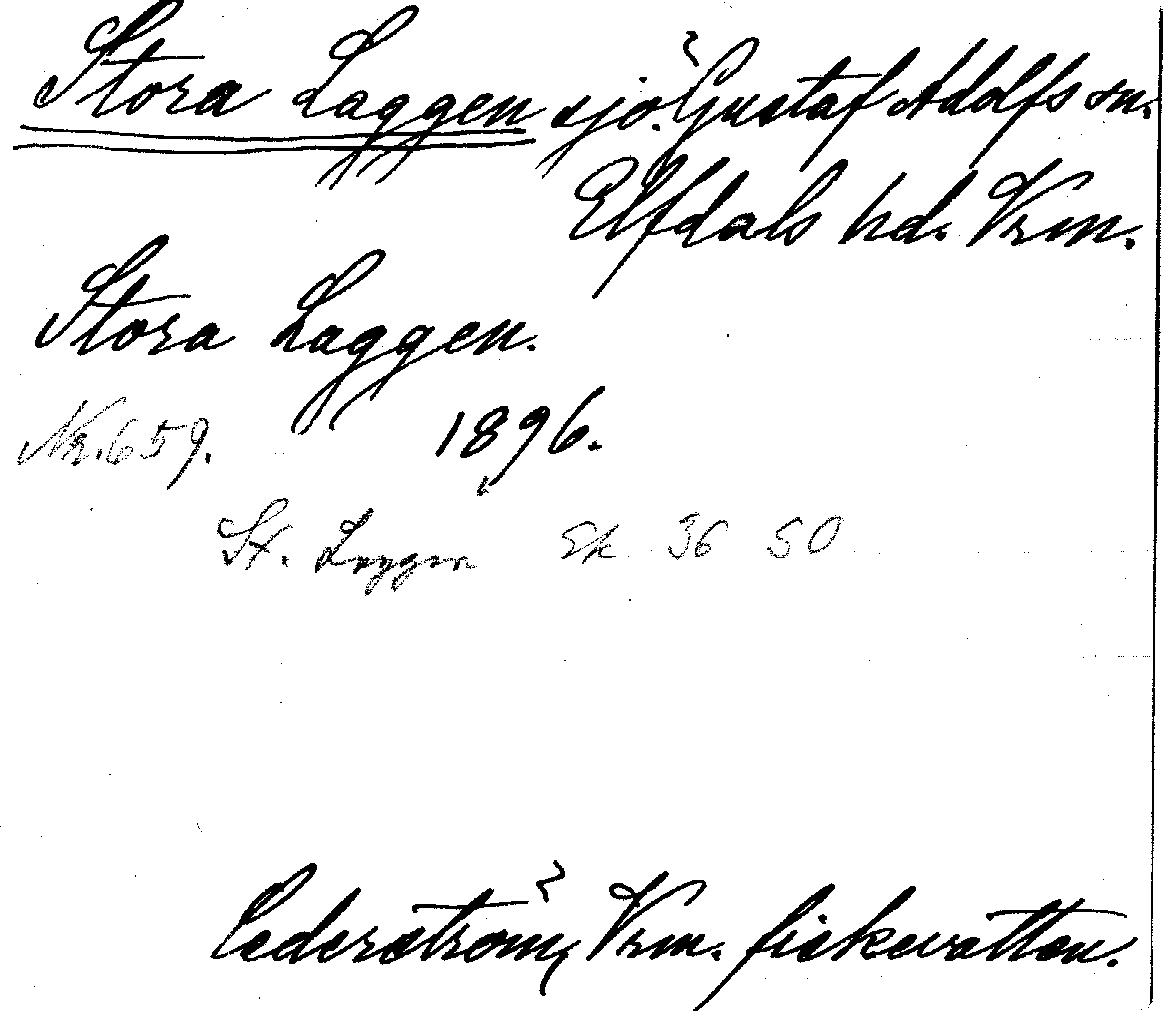 Stora Laggen sjö. Gustaf Adolfs sn.
Elfdals hd. Vrm.
Stora Laggen.
Nr. 659. 1896.
St. Laggen Ek 36 50
Cederström, Vrm. fiskevatten.